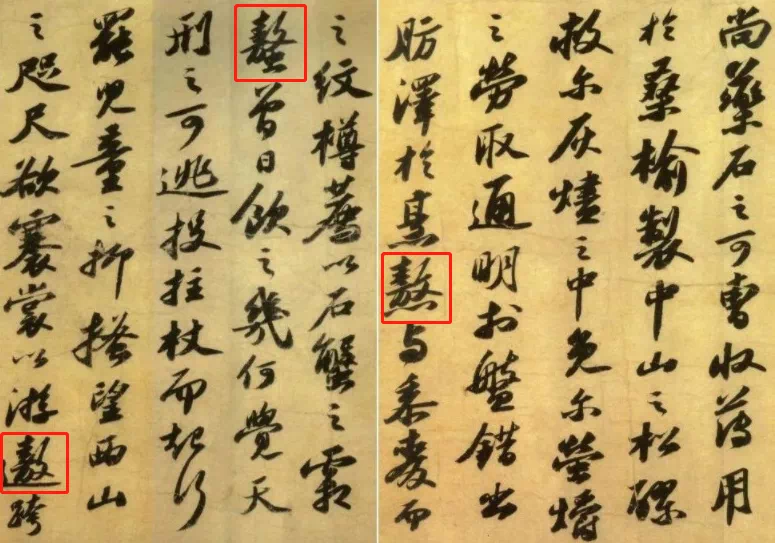 尚藥石之可曹收薄用
於桑榆製中山之松醪
救尓灰燼之中免尓螢爝
之勞取通明於盤錯出
肪澤於烹熬与黍麥而
之紋樽薦以石蟹之霜
螯曾日飲之幾何覺天
刑之可逃投拄杖而起行
罷兒童之抑搔望西山
之咫尺欲褰裳以游遨跨